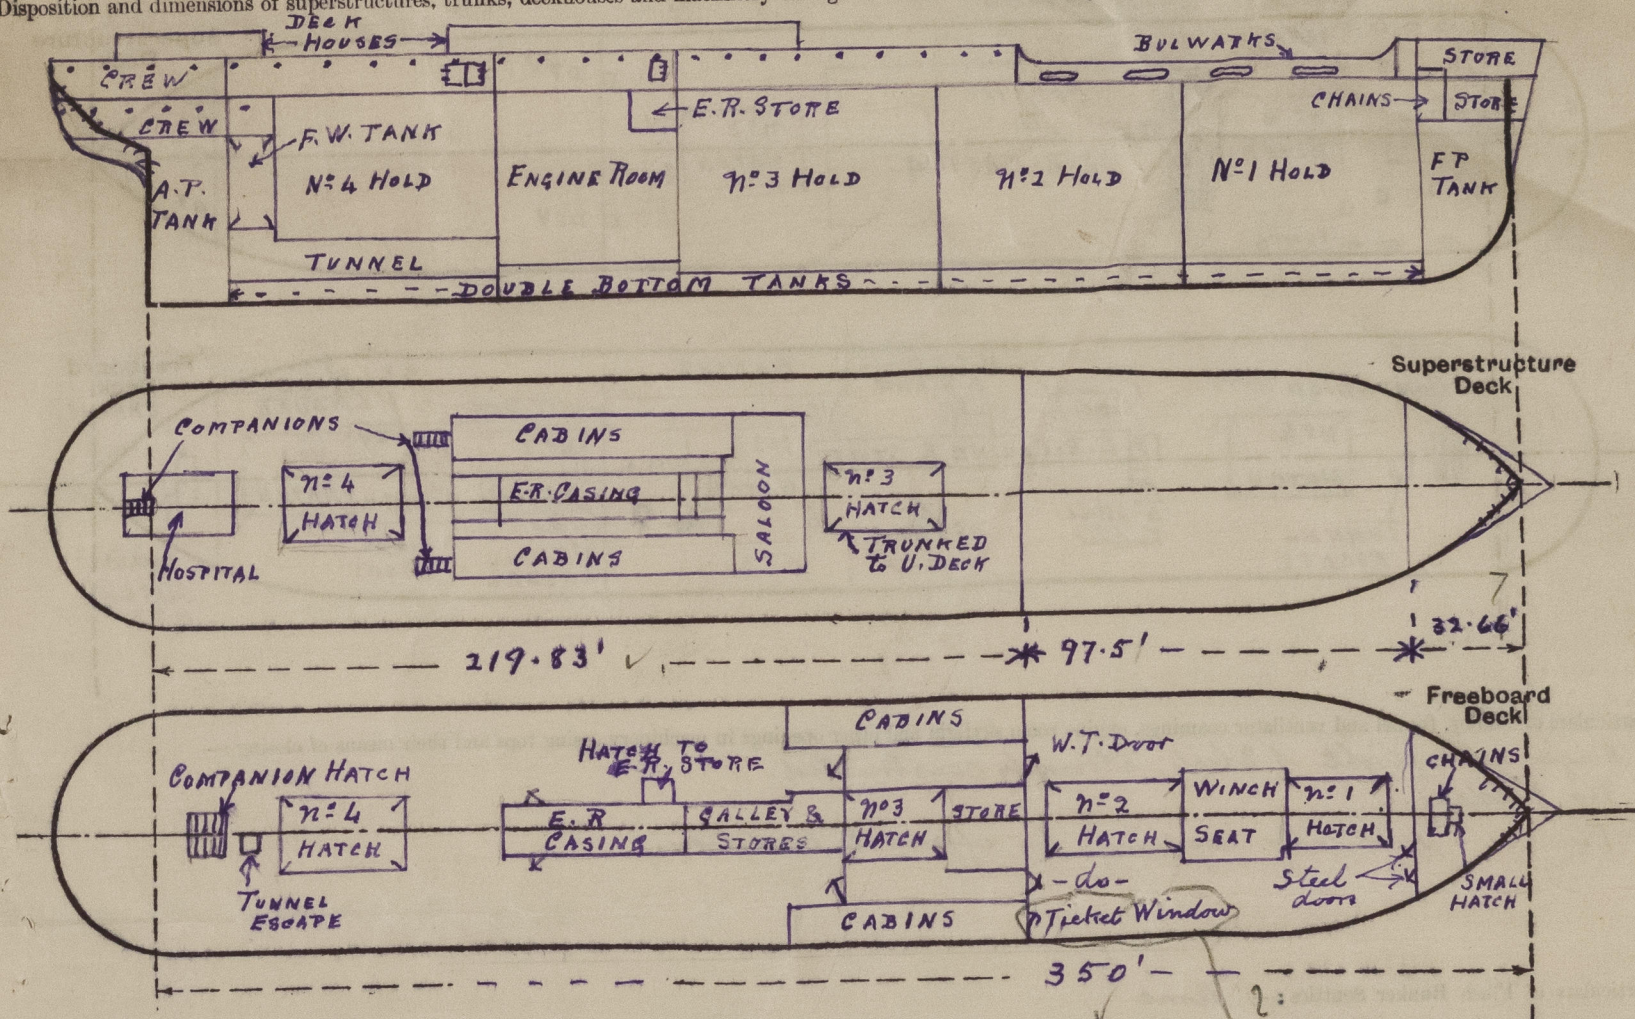 Disposition and dimensions of superstructures, trunks, deckhouses and
DECK
HOUSES
BULWARKS
STORE
CREW
CHAINS
STORE
E.R. STORE
CREW
F.W. TANK
A.P.
TANK
No 4 HOLD
ENGINE ROOM
No 3 HOLD
No 2 HOLD
No 1 HOLD
F P
TANK
TUNNEL
DOUBLE BOTTOM TANKS
Superstructure
Deck
COMPANIONS
CABINS
No 4
HATCH
E.R. CASING
SALOON
No 3
HATCH
CABINS
HOSPITAL
TRUNKED
to U. DECK
7
219.83'
97.5'
32.66'
Freeboard
Deck
CABINS
HATCH TO
E.R. STORE
W.T. Door
CHAINS
COMPANION HATCH
No 4
HATCH
E.R
CASING
GALLEY &
STORES
No 3
HATCH
STORE
No 2
HATCH
WINCH
SEAT
No 1
HATCH
TUNNEL
ESCAPE
CABINS
- do -
Steel
doors
SMALL
HATCH
Ticket Window
350'
2: